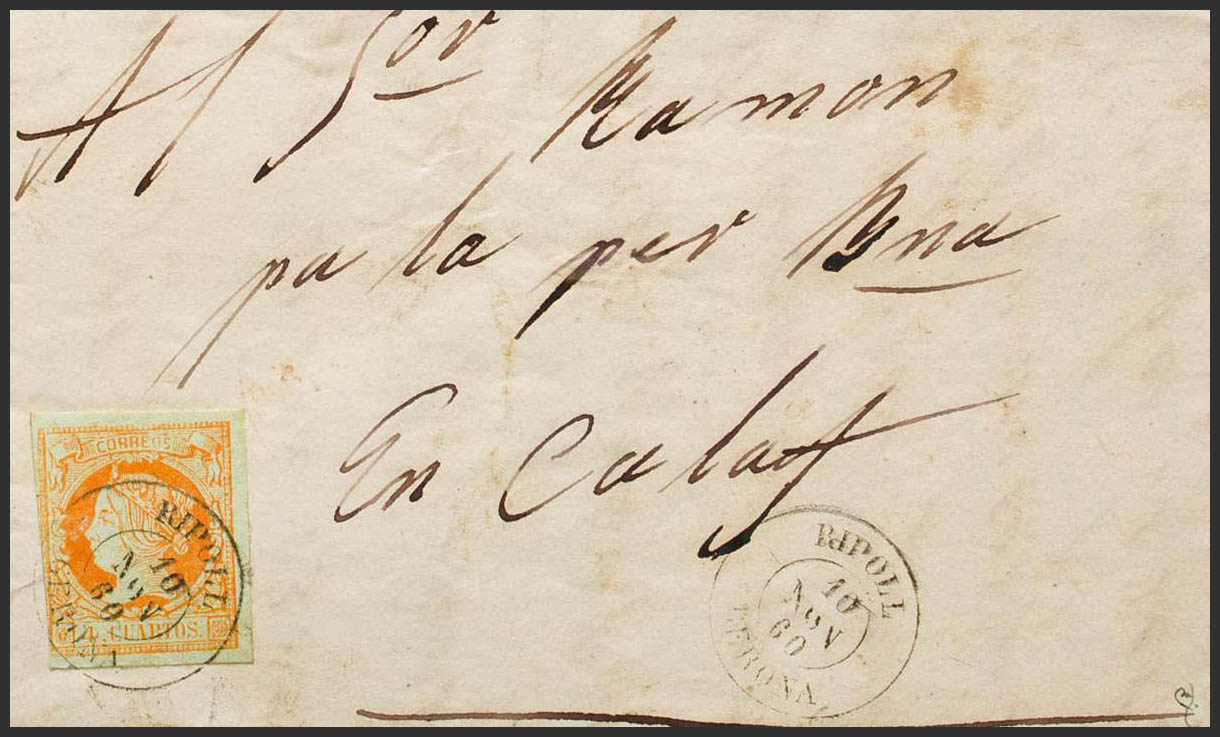 Al Sor Ramon
pa la per Bna
En Calaf
CORREOS
4 CUARTOS.
RIPOLL
10
NOV
60
GERONA
RIPOLL
10
NOV
60
GERONA